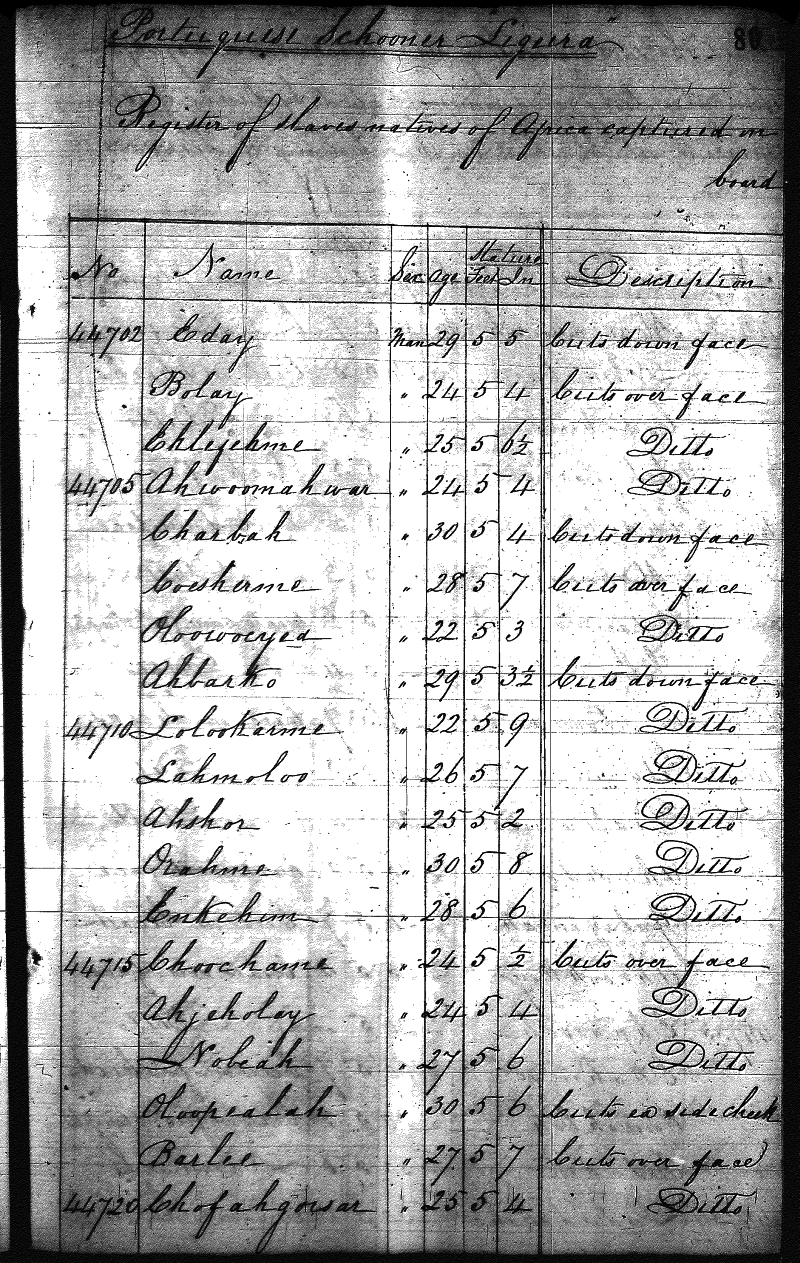 Portuguese Schooner "Ligera"
80
Register of slaves natives of Africa captured on
board
No Name Sex Age Stature Feet In Description
44702 Eday Man 29 5 5 Cuts down face
Bolay " 24 5 4 Cuts over face
Ehlejehme " 25 5 6½ Ditto
44705 Ahwoomahwar " 24 5 4 Ditto
Charbah " 30 5 4 Cuts down face
Coesherme " 28 5 7 Cuts over face
Oloowoeyed " 22 5 3 Ditto
Ahbarko " 29 5 3½ Cuts down face
44710 Lolookarme " 22 5 9 Ditto
Lahmoloo " 26 5 7 Ditto
Ahshor " 25 5 2 Ditto
Orahme " 30 5 8 Ditto
Enkehim " 28 5 6 Ditto
44715 Choochame " 24 5 ½ Cuts over face
Ahjeholay " 24 5 4 Ditto
Nobeah " 27 5 6 Ditto
Oloopealah " 30 5 6 Cuts ea side cheek
Barlee " 27 5 7 Cuts over face
44720 Chofahgowsar " 25 5 4 Ditto